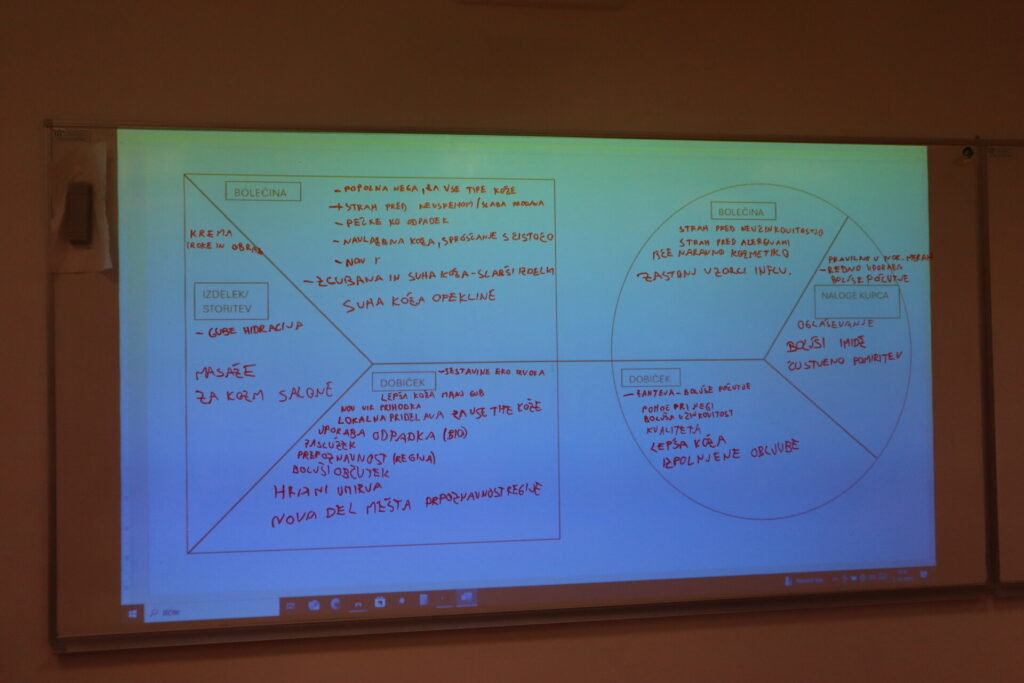 BOLEČINA
- POPOLNA NEGA, ZA VSE TIPE KOŽE
- STRAH PRED NEUSPEHOM/SLABA PRODAJA
- PEČKE KO ODPADEK
- KOŽA, SPROŠČANJE S ČISTOČO
- NOV
- ZGUBANA IN SUHA KOŽA - SLABŠI IZDELKI
SUHA KOŽA OPEKLINE
KREMA
ZA ROKE IN OBRAZ
IZDELEK/
STORITEV
- GUBE HIDRACIJA
MASAŽE
ZA KOZM SALONE
DOBIČEK
- SESTAVINE EKO IZVORA
LEPŠA KOŽA MANJ GUB
NOV VIR PRIHODKA
LOKALNA PRIDELAVA ZA VSE TIPE KOŽE
UPORABA ODPADKA (BIO)
ZASLUŽEK
PREPOZNAVNOST (REGIJA)
BOLJŠI OBČUTEK
HRANI UMIRJA
NOVA DEL MESTA PRPOZNAVNOST REGIJE
BOLEČINA
STRAH PRED NEUČINKOVITOSTJO
STRAH PRED ALERGIJAMI
IŠČE NARAVNO KOZMETIKO
ZASTONJ VZORCI INFLU.
PRAVILNO
- REDNO UPORABO
BOLJŠE POČUTJE
NALOGE KUPCA
OGLAŠEVANJE
BOLJŠI IMIDŽ
ČUSTVENO POMIRITEV
DOBIČEK
- BOLJŠE POČUTJE
POMOČ PRI NEGI
BOLJŠA UČINKOVITOST
KVALITETA
LEPŠA KOŽA
IZPOLNJENE OBLJUBE